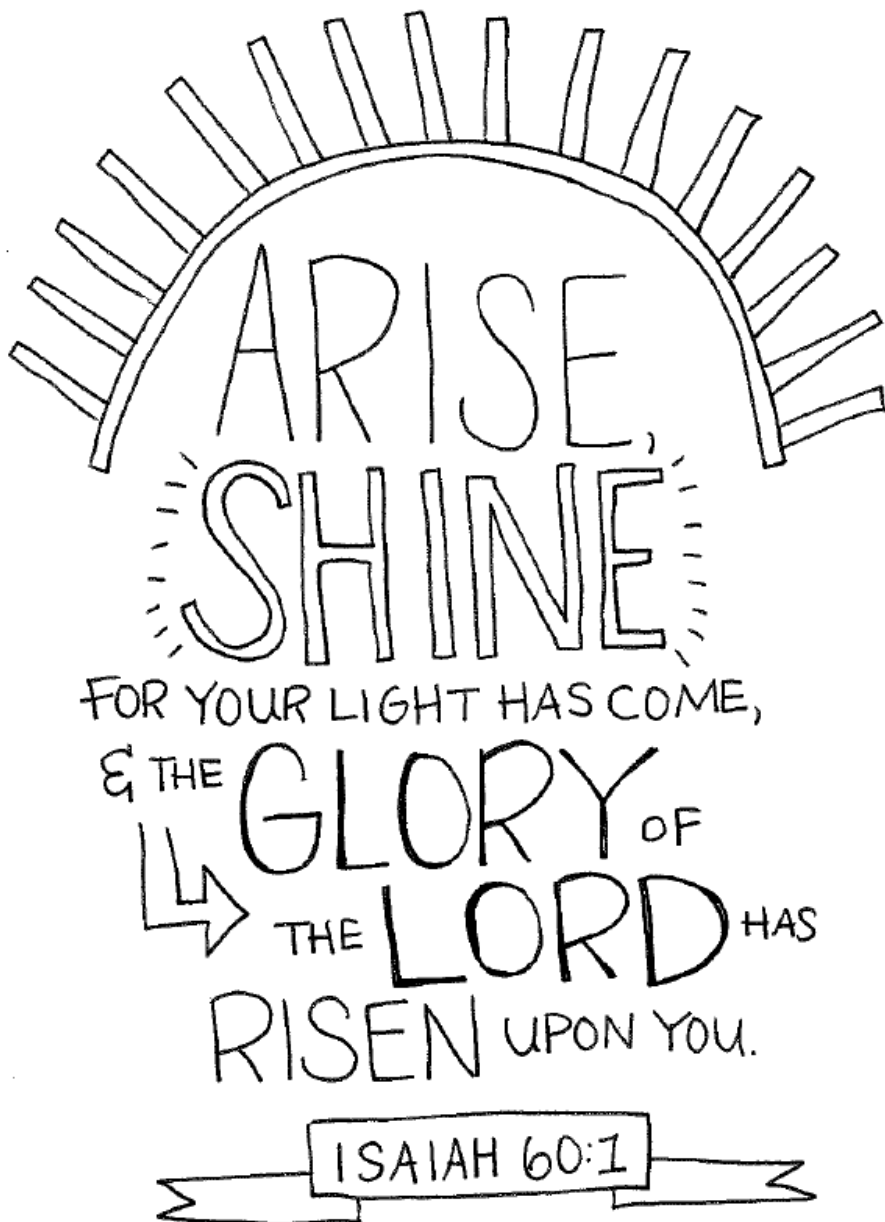 ARISE,
SHINE
FOR YOUR LIGHT HAS COME,
& THE GLORY OF
THE LORD HAS
RISEN UPON YOU.
ISAIAH 60:1